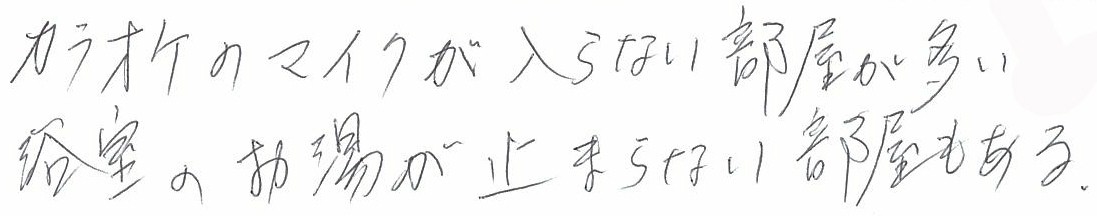 カラオケのマイクが入らない部屋が多い
浴室のお湯が止まらない部屋もある.